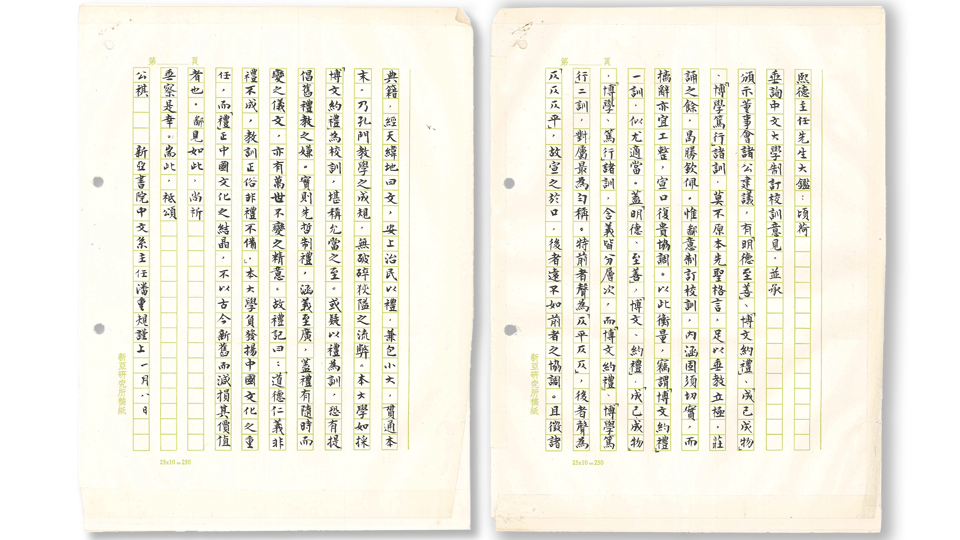 第　頁
熙德主任先生大鑑：頃荷
垂詢中文大學制訂校訓意見，並承
頒示董事會諸公建議，有「明德至善」、「博文約禮」、「成己成物」
、「博學篤行」諸訓，莫不原本先聖格言，足以垂教立極，莊
誦之餘，曷勝欽佩。惟鄙意制訂校訓，內涵固須切實，而
摛辭亦宜工整，宣口復貴協調。以此衡量，竊謂「博文約禮」
一訓，似尤適當。蓋「明德、至善」，「博文、約禮」，「成己成物」
、「博學、篤行」諸訓，含義皆分層次，而「博文約禮」、「博學篤
行」二訓，對屬最為勻稱。特前者聲為「仄平仄仄」，後者聲為
「仄仄仄平」，故宣之於口，後者遠不如前者之協調。且徵諸
新亞研究所稿紙
25x10=250
第　頁
典籍，經天緯地曰文，安上治民以禮，兼包小大，貫通本
末，乃孔門教學之成規，無破碎狹隘之流弊。本大學如採
「博文約禮」為校訓，堪稱允當之至。或疑以禮為訓，恐有提
倡舊禮教之嫌。實則先哲制禮，涵義至廣，蓋禮有隨時而
變之儀文，亦有萬世不變之精意。故禮記曰：「道德仁義非
禮不成，教訓正俗非禮不備」。本大學負發揚中國文化之重
任，而「禮」正中國文化之結晶，不以古今新舊而減損其價值
者也。鄙見如此，尚祈
垂察是幸。耑此，祗頌
公祺　新亞書院中文系主任潘重規謹上　一月八日
新亞研究所稿紙
25x10=250